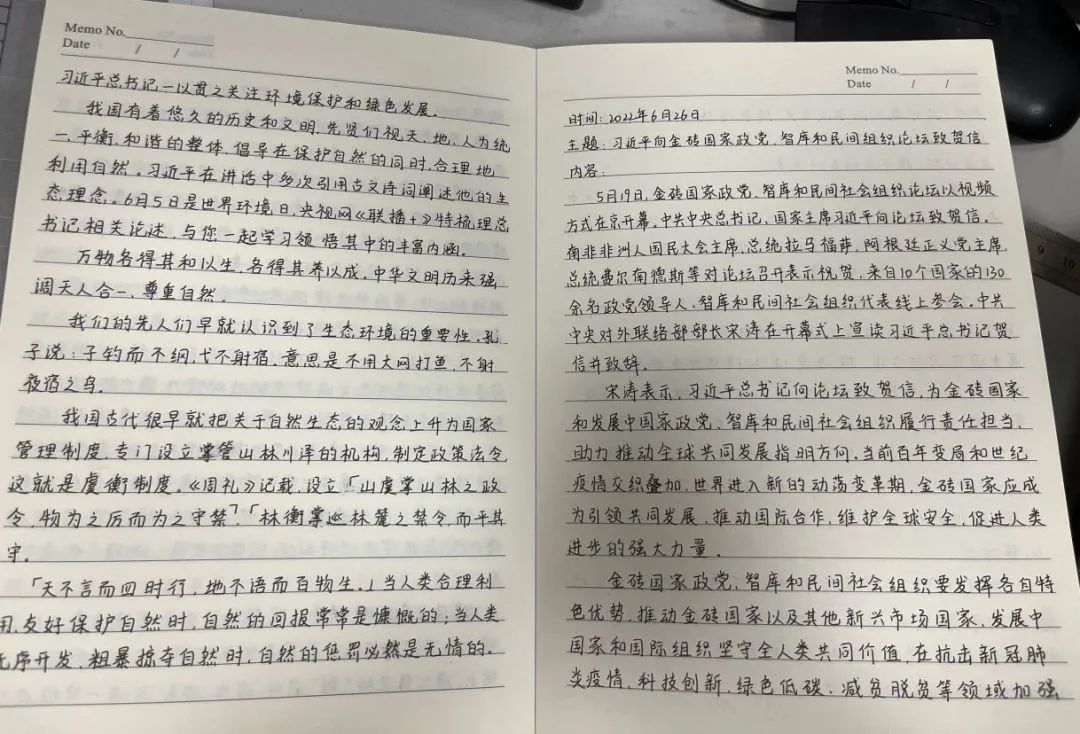 Memo No.
Date / /
习近平总书记一以贯之关注环境保护和绿色发展.
我国有着悠久的历史和文明,先贤们视天,地,人为统
一,平衡,和谐的整体,倡导在保护自然的同时,合理地
利用自然。习近平在讲话中多次引用古文诗词阐述他的生
态理念。6月5日是世界环境日,央视网《联播+》特梳理总
书记相关论述,与您一起学习领悟其中的丰富内涵.
万物各得其和以生,各得其养以成,中华文明历来强
调天人合一,尊重自然.
我们的先人们早就认识到了生态环境的重要性,孔
子说:子钓而不纲,弋不射宿.意思是不用大网打鱼,不射
夜宿之鸟.
我国古代很早就把关于自然生态的观念上升为国家
管理制度,专门设立掌管山林川泽的机构,制定政策法令
这就是虞衡制度。《周礼》记载,设立「山虞掌山林之政
令,物为之厉而为之守禁」,「林衡掌巡林麓之禁令,而平其
守.
「天不言而四时行,地不语而百物生.」当人类合理利
用,友好保护自然时,自然的回报常常是慷慨的;当人类
无序开发,粗暴掠夺自然时,自然的惩罚必然是无情的.
Memo No.
Date / /
时间:2022年6月26日
主题:习近平向金砖国家政党,智库和民间组织论坛致贺信
内容:
5月19日,金砖国家政党、智库和民间社会组织论坛以视频
方式在京开幕.中共中央总书记、国家主席习近平向论坛致贺信.
南非非洲人国民大会主席,总统拉马福萨,阿根廷正义党主席
总统费尔南德斯等对论坛召开表示祝贺,来自10个国家的130
余名政党领导人、智库和民间社会组织代表线上参会.中共
中央对外联络部部长宋涛在开幕式上宣读习近平总书记贺
信并致辞.
宋涛表示,习近平总书记向论坛致贺信,为金砖国家
和发展中国家政党、智库和民间社会组织履行责任担当,
助力推动全球共同发展指明方向.当前百年变局和世纪
疫情交织叠加,世界进入新的动荡变革期,金砖国家应成
为引领共同发展,推动国际合作,维护全球安全,促进人类
进步的强大力量.
金砖国家政党、智库和民间社会组织要发挥各自特
色优势,推动金砖国家以及其他新兴市场国家、发展中
国家和国际组织坚守全人类共同价值,在抗击新冠肺
炎疫情,科技创新,绿色低碳、减贫脱贫等领域加强